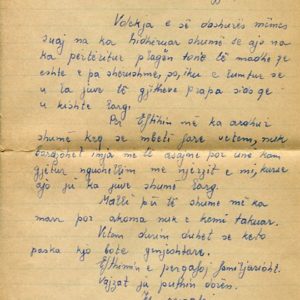 Vdekja e së dashurës mëmës
suaj na ka hidhëruar shumë se ajo na
ka përtëritur plagën tonë të madhe që
është e pa shërushme, po, iku e lumtur se
u la juve të gjithëve prapa sido që
u kishte larg.
Për Efthimin më ka ardhur
shumë keq se mbeti fare vetëm, nuk
largohet imja me të asajme por une kam
gjetur ngushëllim me njerzit e mi, kurse
ajo ju ka juve shumë larg.
Malli për të shumë më ka
marr por akoma nuk e kemi takuar.
Vetëm durim duhet se keto
paska kjo botë gënjeshtare.
Efthimin e përgafoj familjarisht.
Vajzat ju puthin dorën.